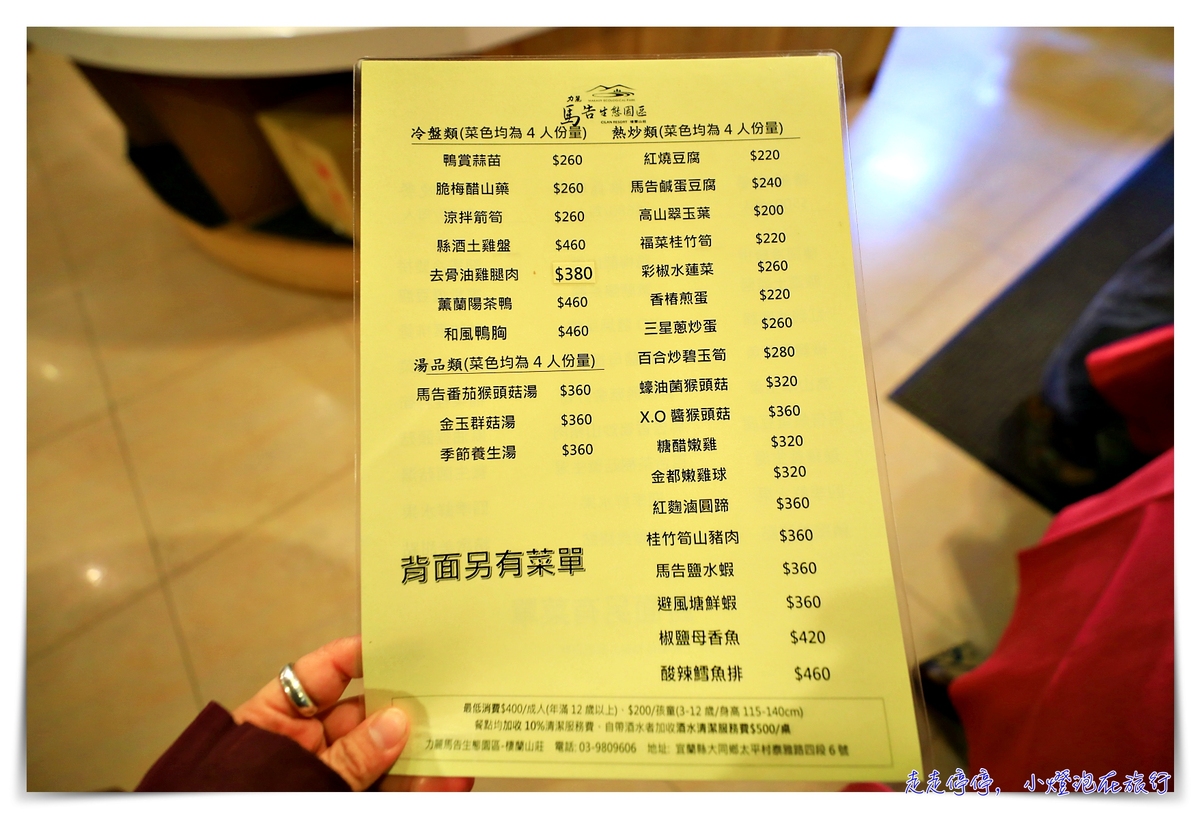 力麗
馬告生態園區
冷盤類(菜色均為 4 人份量)
鴨賞蒜苗 $260
脆梅醋山藥 $260
涼拌箭筍 $260
縣酒土雞盤 $460
去骨油雞腿肉 $380
薰蘭陽茶鴨 $460
和風鴨胸 $460
湯品類(菜色均為 4 人份量)
馬告番茄猴頭菇湯 $360
金玉群菇湯 $360
季節養生湯 $360
背面另有菜單
熱炒類(菜色均為 4 人份量)
紅燒豆腐 $220
馬告鹹蛋豆腐 $240
高山翠玉葉 $200
福菜桂竹筍 $220
彩椒水蓮菜 $260
香椿煎蛋 $220
三星蔥炒蛋 $260
百合炒碧玉筍 $280
蠔油菌猴頭菇 $320
X.O 醬猴頭菇 $360
糖醋嫩雞 $320
金都嫩雞球 $320
紅麴滷圓蹄 $360
桂竹筍山豬肉 $360
馬告鹽水蝦 $360
避風塘鮮蝦 $360
椒鹽母香魚 $420
酸辣鱈魚排 $460
最低消費$400/成人(年滿 12 歲以上)、$200/孩童(3-12 歲/身高 115-140cm)
餐點均加收 10%清潔服務費，自帶酒水者加收酒水清潔服務費$500/桌
力麗馬告生態園區-棲蘭山莊 電話: 03-9809606 地址: 宜蘭縣大同鄉太平村泰雅路四段 6 號
走走停停, 小燈泡在旅行